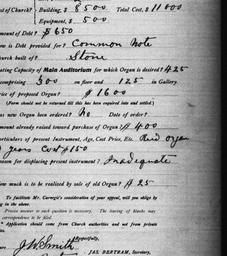 of Church? { Building, $ 8500 Total Cost, $ 11000
Equipment, $ 500
mount of Debt? $ 650
ow is Debt provided for? Common Note
hurch built of? Stone
ating Capacity of Main Auditorium for which Organ is desired? 425
omprising 300 on floor and 125 in Gallery.
rice of proposed Organ? $ 1600
(Form should not be returned till this has been required into and settled.)
as new Organ been ordered? No Date of order?
mount already raised toward purchase of Organ? $ 400
articulars of present Instrument, Age, Cost Price, Etc. Reed organ
years Cost $150
eason for displacing present instrument? Inadequate
ow much is to be realized by sale of old Organ? $ 25
To facilitate Mr. Carnegie's consideration of your appeal, will you oblige by
ing in the above.
Precise answer to each question is necessary. The leaving of blanks may
correspondence to be ignored.
Application should come from Church authorities and not from private
viduals.
Respectfully,
J W Smith
JAS. BERTRAM, Secretary,